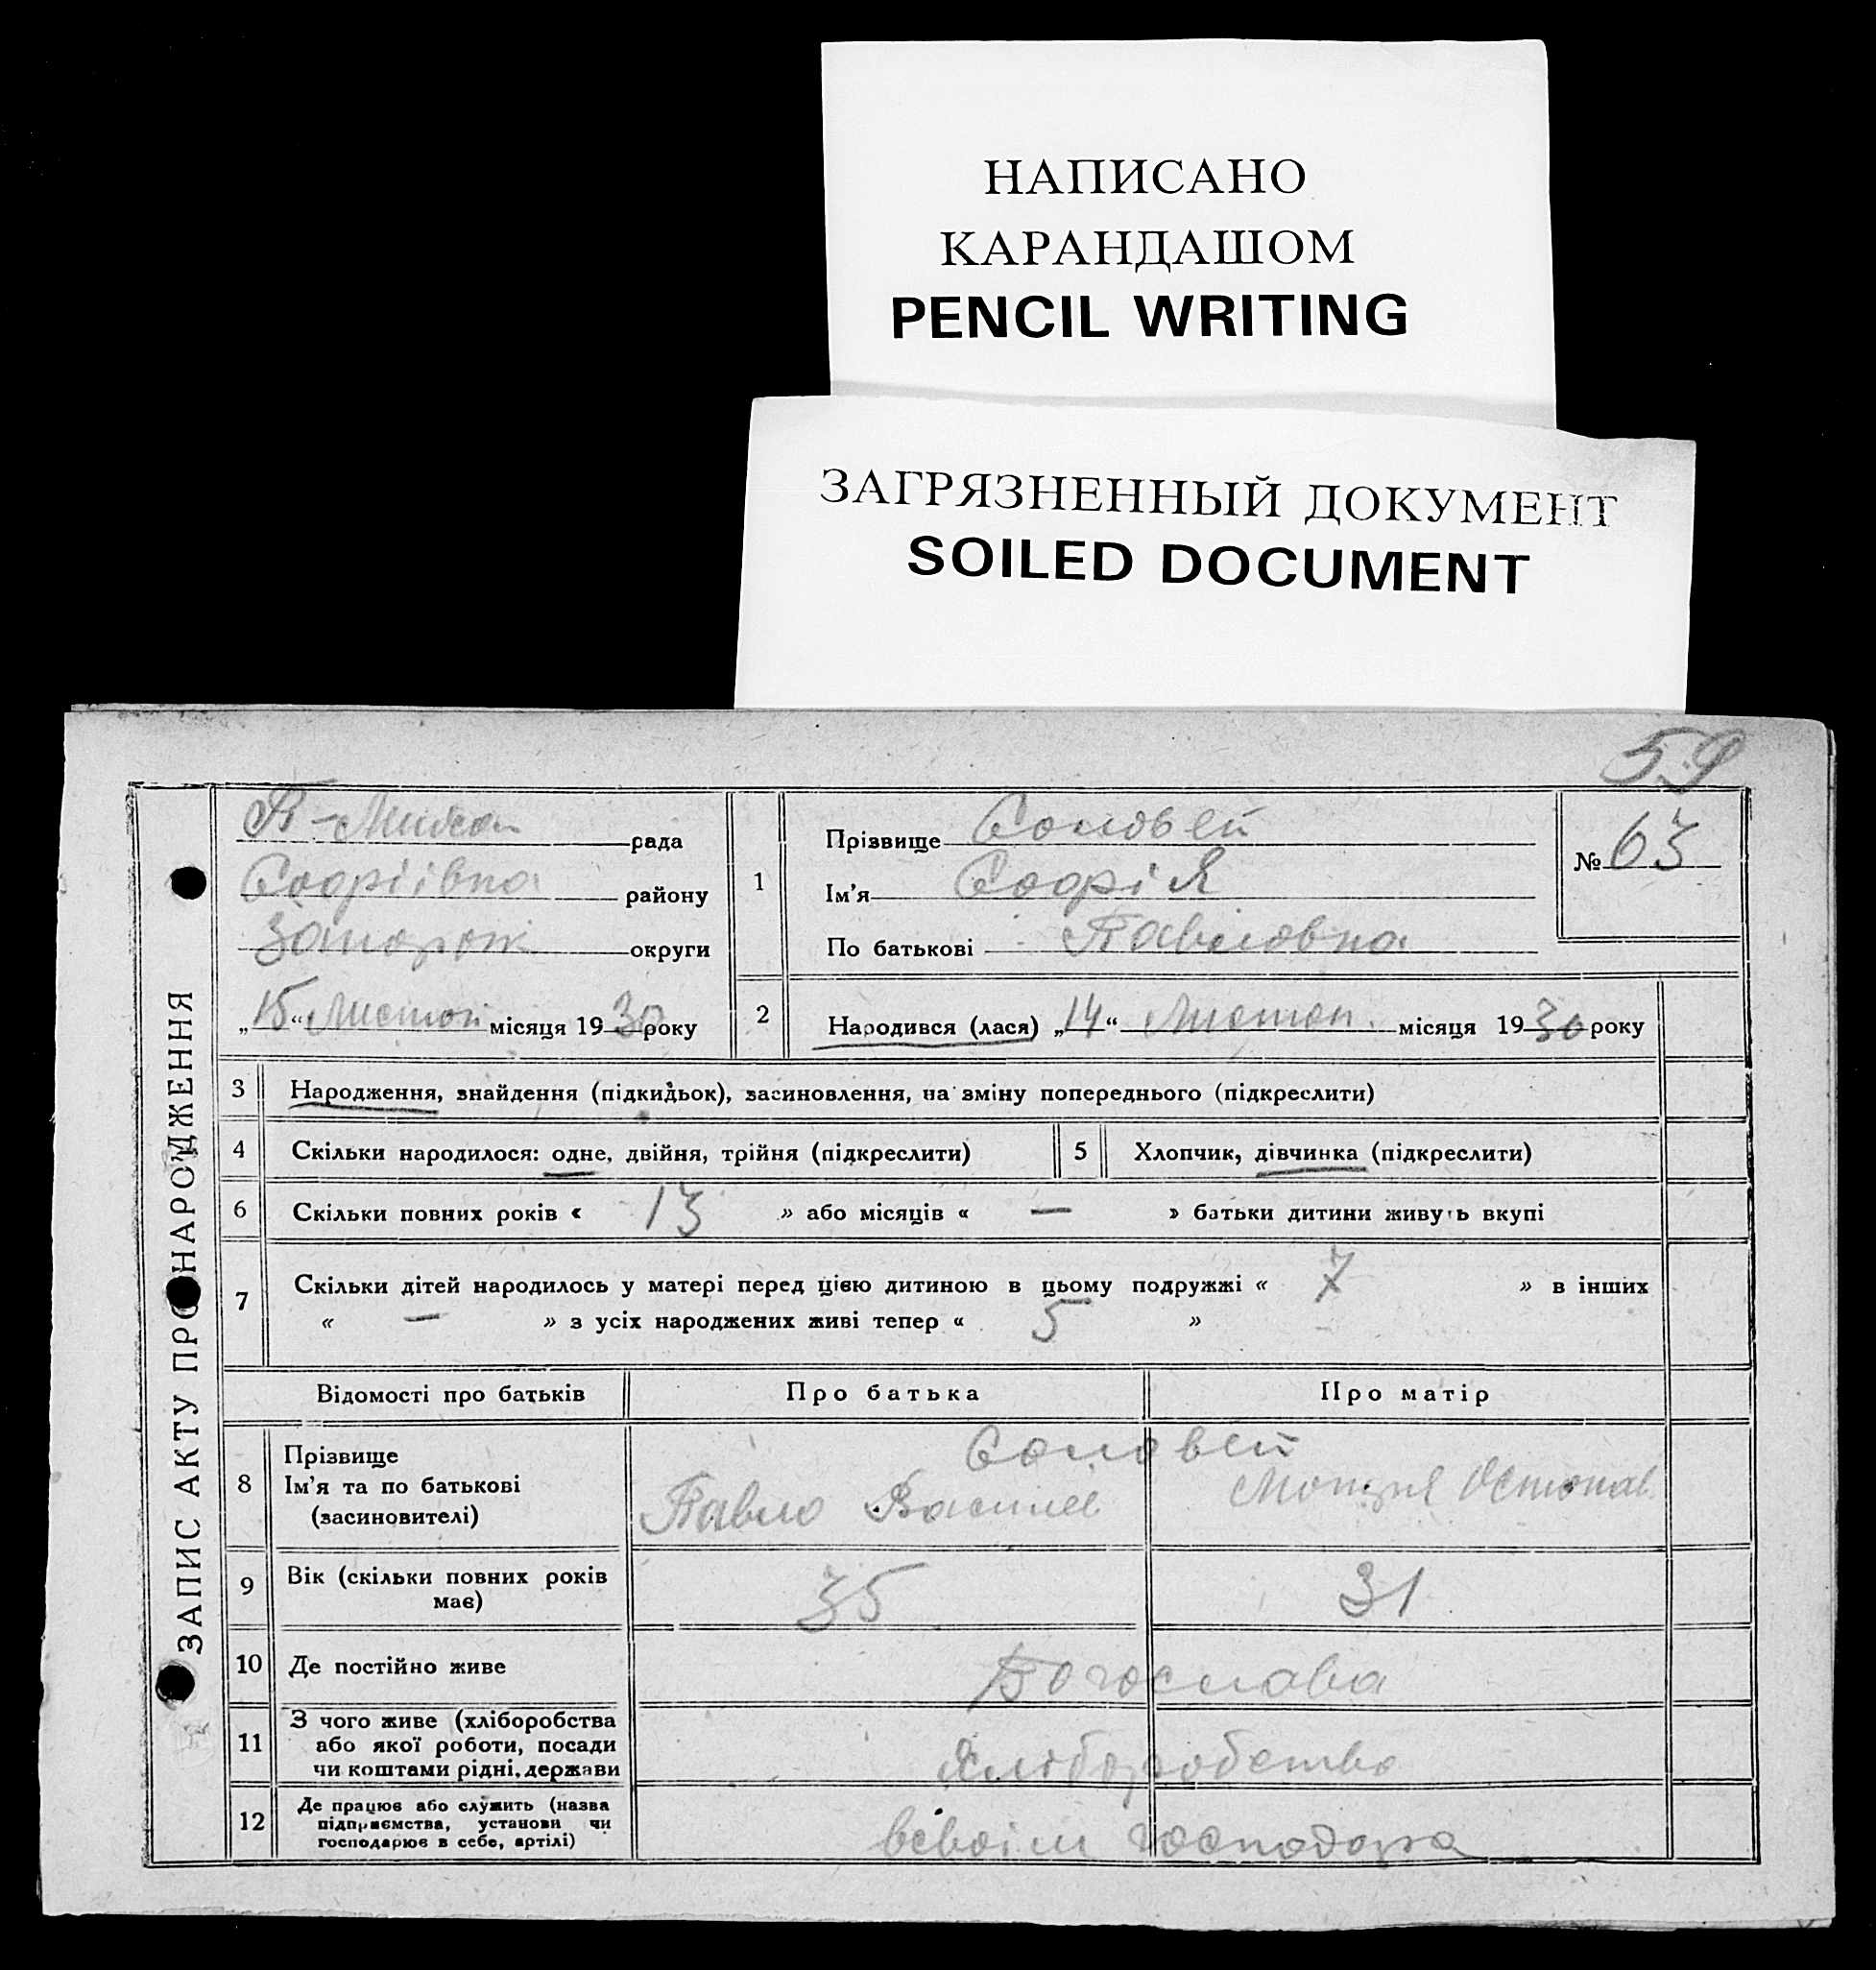 НАПИСАНО
КАРАНДАШОМ
PENCIL WRITING
ЗАГРЯЗНЕННЫЙ ДОКУМЕНТ
SOILED DOCUMENT
59
ЗАПИС АКТУ ПРО НАРОДЖЕННЯ
рада
Софіівка району
Запорож округи
„15“ Листоп місяця 1930 року
1
Прізвище Соловей
Ім'я Софія
По батькові Павловна
№ 63
2
Народився (лася) „14“ Листоп. місяця 1930 року
3 Народження, знайдення (підкидьок), засиновлення, на зміну попереднього (підкреслити)
4 Скільки народилося: одне, двійня, трійня (підкреслити)
5 Хлопчик, дівчинка (підкреслити)
6 Скільки повних років « 13 » або місяців « — » батьки дитини живуть вкупі
7 Скільки дітей народилось у матері перед цією дитиною в цьому подружжі « 7 » в інших
« — » з усіх народжених живі тепер « 5 »
Відомості про батьків Про батька Про матір
8 Прізвище
Ім'я та по батькові
(засиновителі)
Соловей
Павло Василев
Остопав.
9 Вік (скільки повних років
має)
35 31
10 Де постійно живе Богослава
11 З чого живе (хліборобства
або якої роботи, посади
чи коштами рідні, держави
Хліборобство
12 Де працює або служить (назва
підприємства, установи чи
господарює в себе, артілі)
всвоім господара